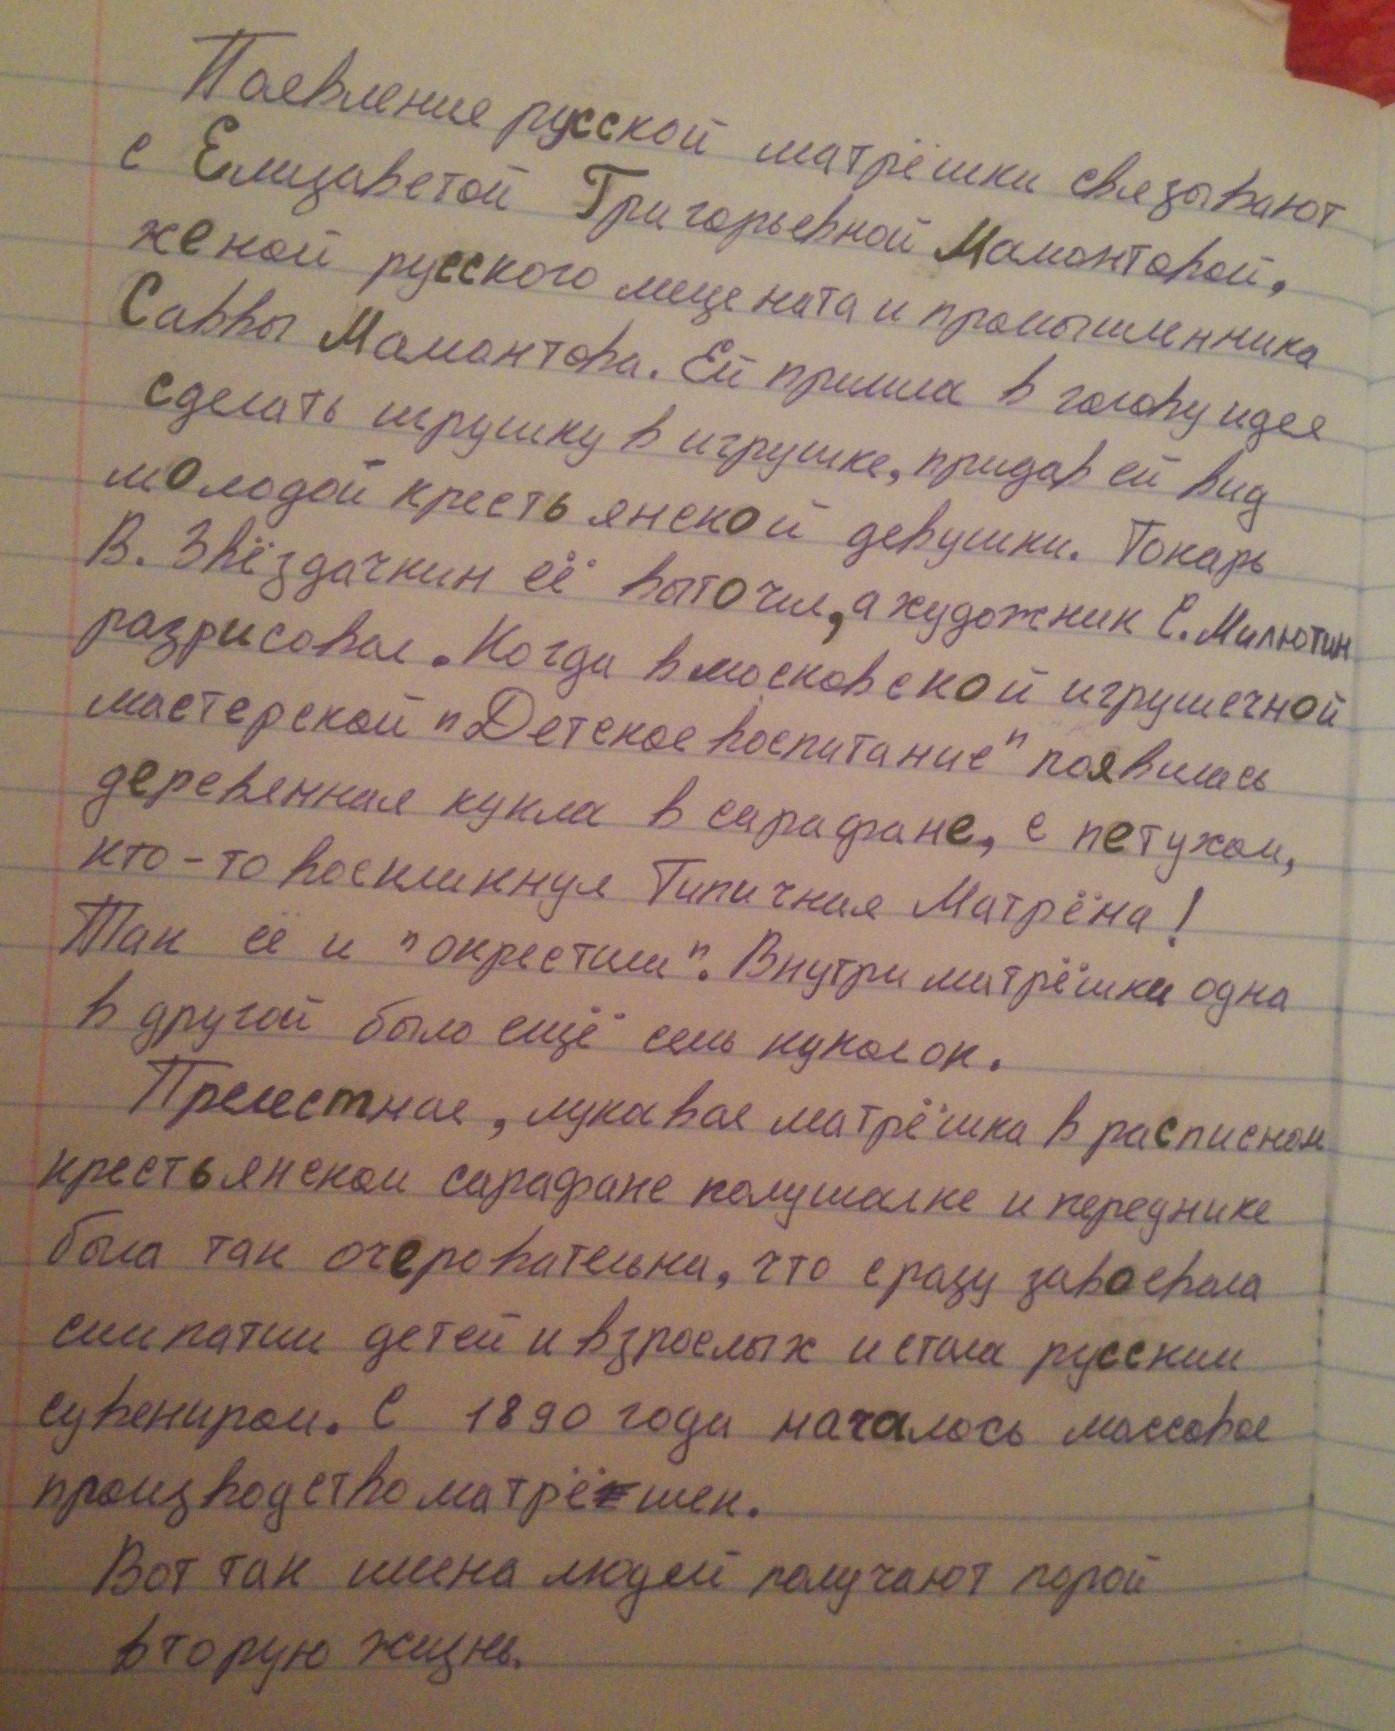 Появление русской матрёшки связывают
с Елизаветой Григорьевной Мамонтовой,
женой русского мецената и промышленника
Саввы Мамонтова. Ей пришла в голову идея
сделать игрушку в игрушке, придав ей вид
молодой крестьянской девушки. Токарь
В. Звёздачкин её выточил, а художник С. Милютин
разрисовал. Когда в московской игрушечной
мастерской "Детское воспитание" появилась
деревянная кукла в сарафане, с петухом,
кто-то воскликнул Типичная Матрёна!
Так её и "окрестили". Внутри матрёшки одна
в другой было ещё семь куколок.
Прелестная, лукавая матрёшка в расписном
крестьянском сарафане полушалке и переднике
была так очеровательна, что сразу завоевала
симпатии детей и взрослых и стала русским
сувениром. С 1890 года началось массовое
производство матрёшек.
Вот так имена людей получают порой
вторую жизнь.